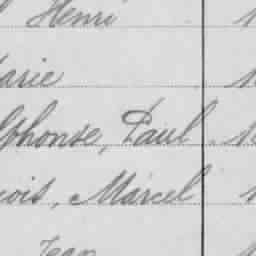 Henri
arie
lphonse, Paul
çois, Marcel
Jean